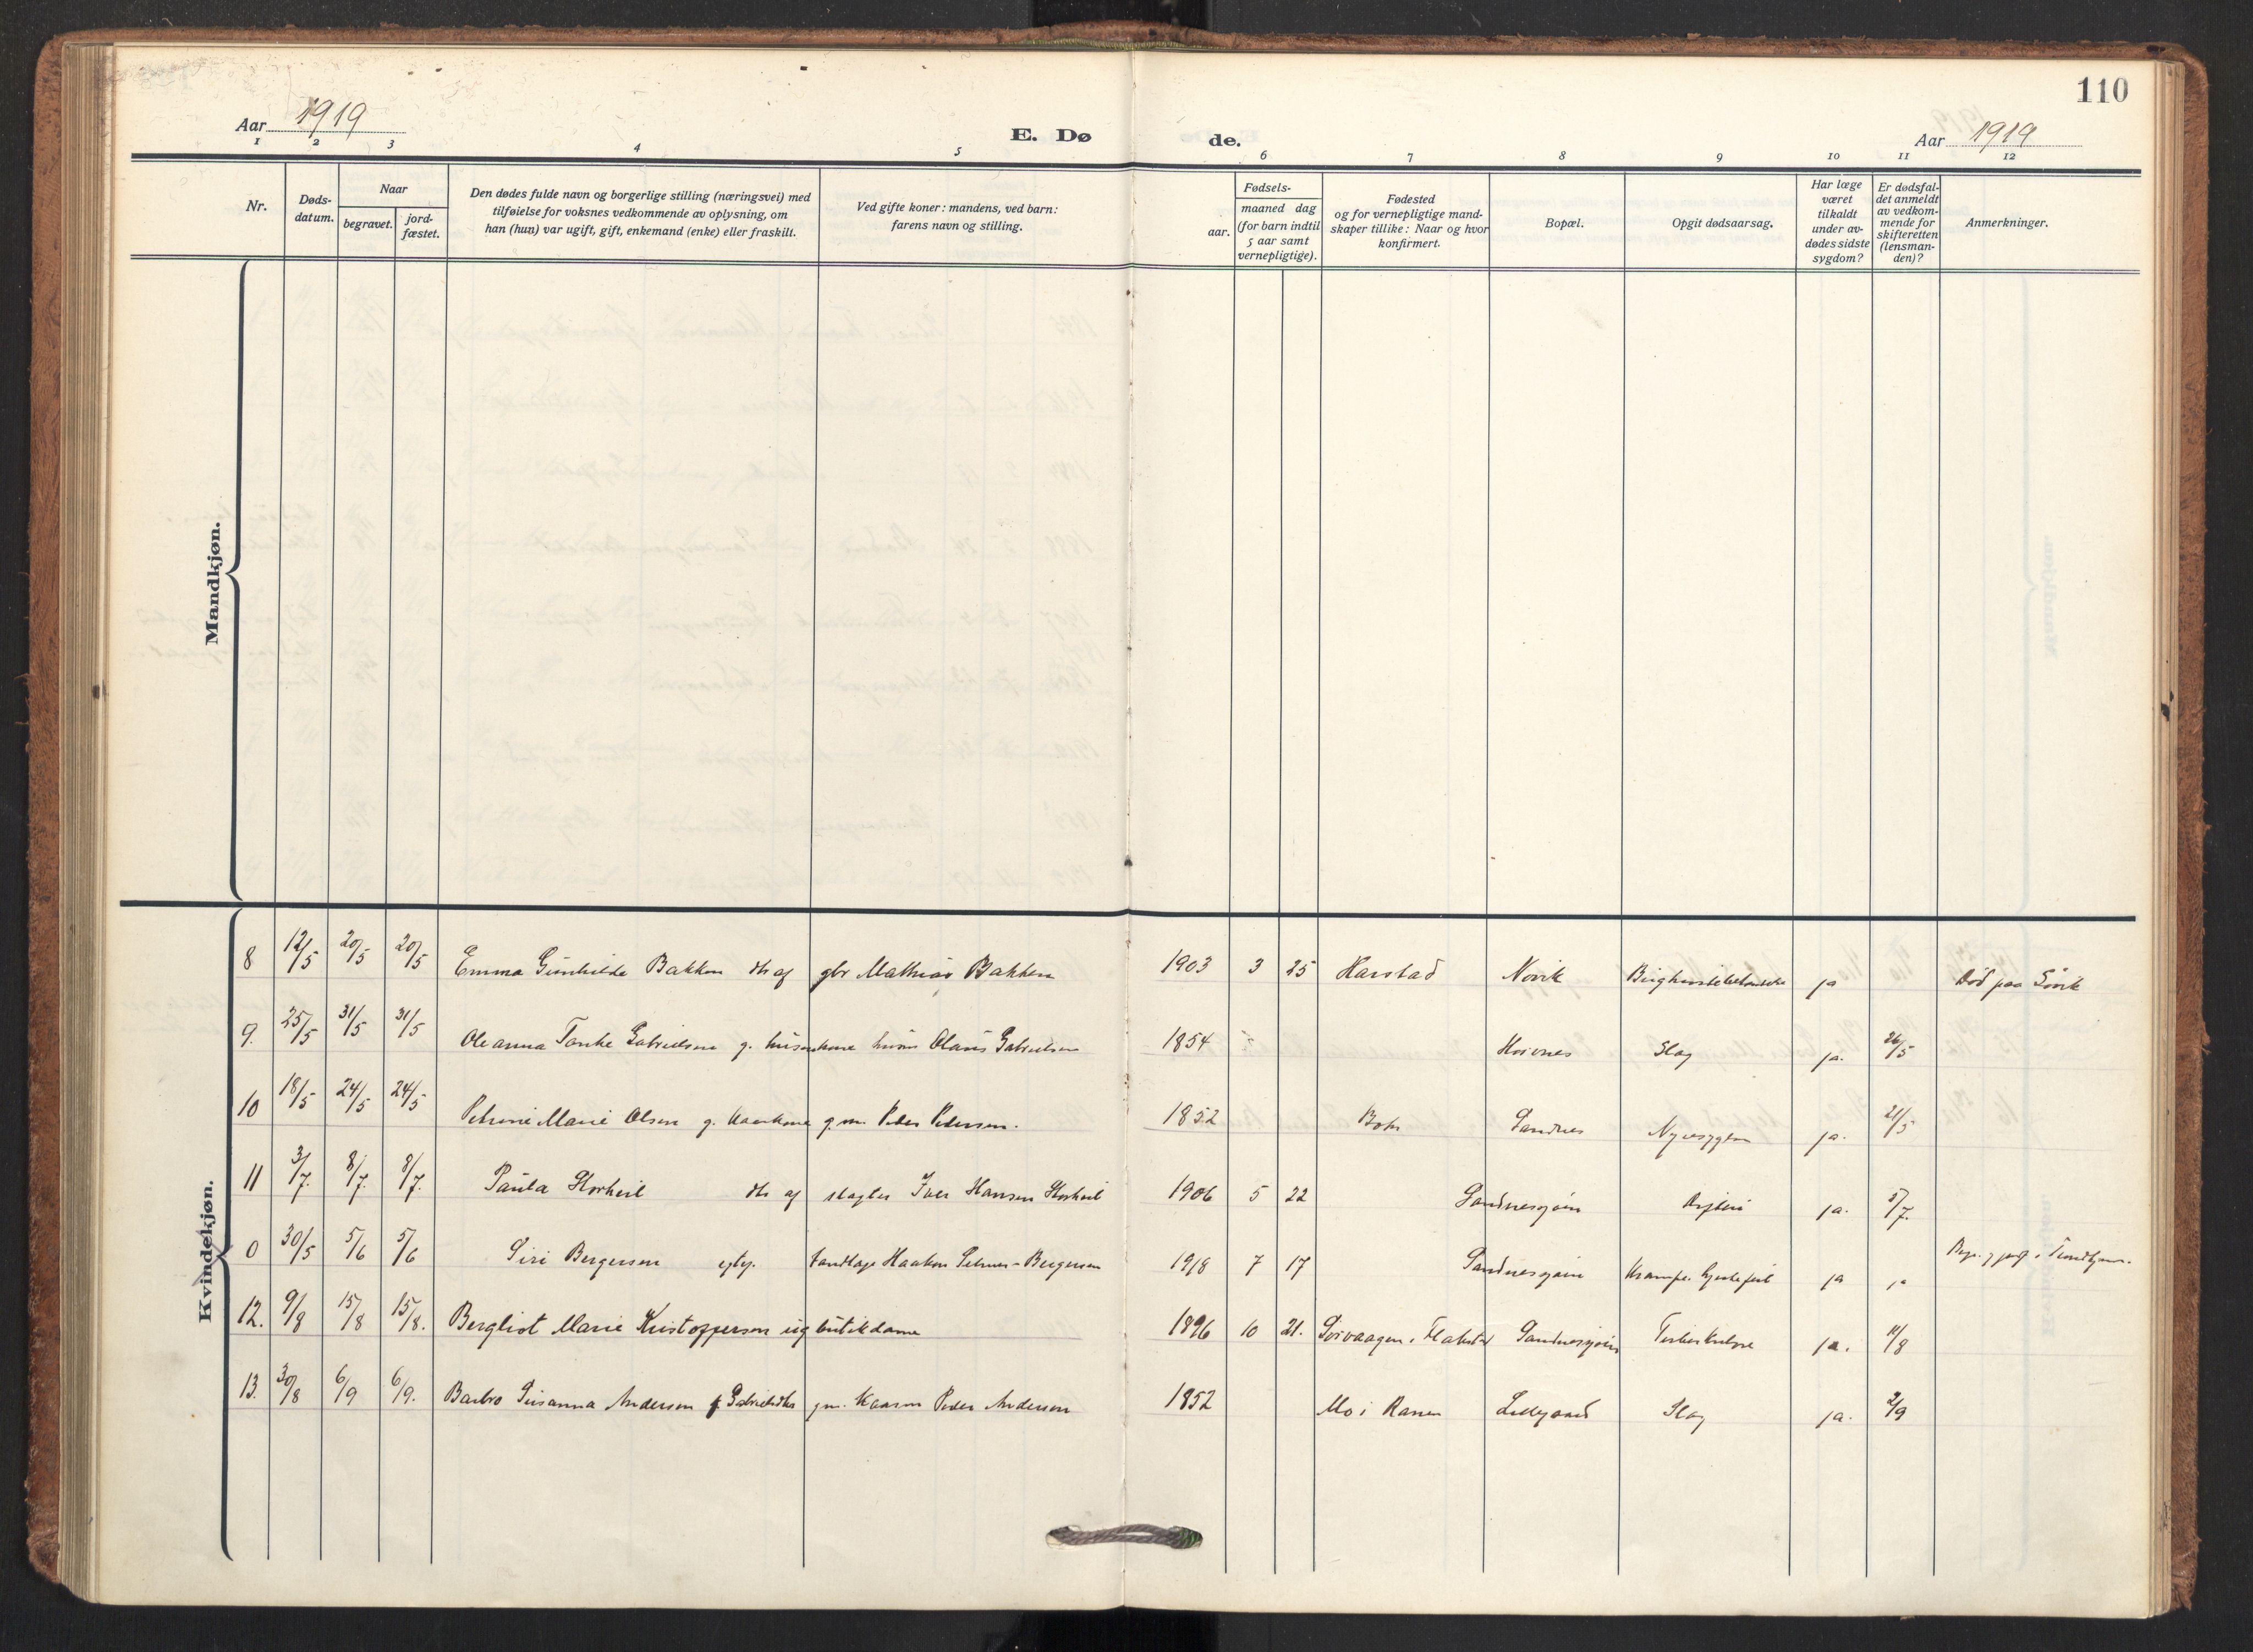 110
Aar 1919
E. Dø
de.
Aar 1919
1 2 3 4 5 6 7 8 9 10 11 12
Nr.
Døds-
datum.
Naar
begravet.
jord-
fæstet.
Den dødes fulde navn og borgerlige stilling (næringsvei) med
tilføielse for voksnes vedkommende av oplysning, om
han (hun) var ugift, gift, enkemand (enke) eller fraskilt.
Ved gifte koner: mandens, ved barn:
farens navn og stilling.
Fødsels-
aar.
maaned dag
(for barn indtil
5 aar samt
vernepligtige).
Fødested
og for vernepligtige mand-
skaper tillike: Naar og hvor
konfirmert.
Bopæl.
Opgit dødsaarsag.
Har læge
været
tilkaldt
under av-
dødes sidste
sygdom?
Er dødsfal-
det anmeldt
av vedkom-
mende for
skifteretten
(lensman-
den)?
Anmerkninger.
Mandkjøn.
Kvindekjøn.
8 12/5 20/5 20/5 Emma Gunhilde Bakken dtr af gbr Mathias Bakken 1903 3 25 Harstad Novik ja Död paa Sövik
9. 25/5 31/5 31/5 Oleanna Tanke Gabrielsen g. Olaus Gabrielsen 1854 Slag ja. 26/5
10 18/5 24/5 24/5 Petrine Marie Olsen g. kaarkone g.m. Peder Pedersen. 1852 Sandnes Nyresygdom ja. 21/5
11 3/7. 8/7. 8/7. Paula Horkeil dtr af slagter Iver Hansen 1906 5 22 Sandnessjøen ja. 5/7.
0 30/5 5/6 5/6 Siri Bergersen Haakon Bergersen 1918 7 17 Sandnessjøen ja
12. 9/8 15/8 15/8. Bergliot Marie Kristoffersen ug butikdame 1896 10 21. Sørvaagen i Flakstad Sandnessjøen Tuberkulose ja. 11/8
13. 30/8 6/9 6/9. Barbro Susanna Andersen f. Gabrielsdtr g.m. Kaarm Peder Andersen 1852 Mo i Ranen Slag ja. 2/9